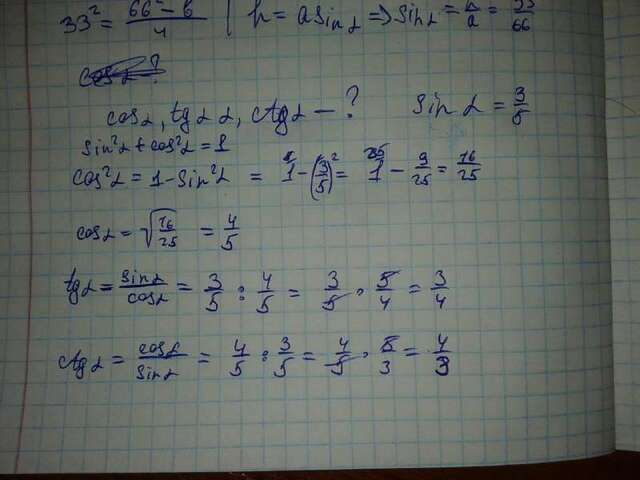 33² = 66² - b / 4 | h = a sin α ⇒ sin α = h/a = 33/66
cos α, tg α, ctg α - ? sin α = 3/5
sin²α + cos²α = 1
cos²α = 1 - sin²α = 1 - (3/5)² = 1 - 9/25 = 16/25
cos α = √16/25 = 4/5
tg α = sin α / cos α = 3/5 : 4/5 = 3/5 · 5/4 = 3/4
ctg α = cos α / sin α = 4/5 : 3/5 = 4/5 · 5/3 = 4/3